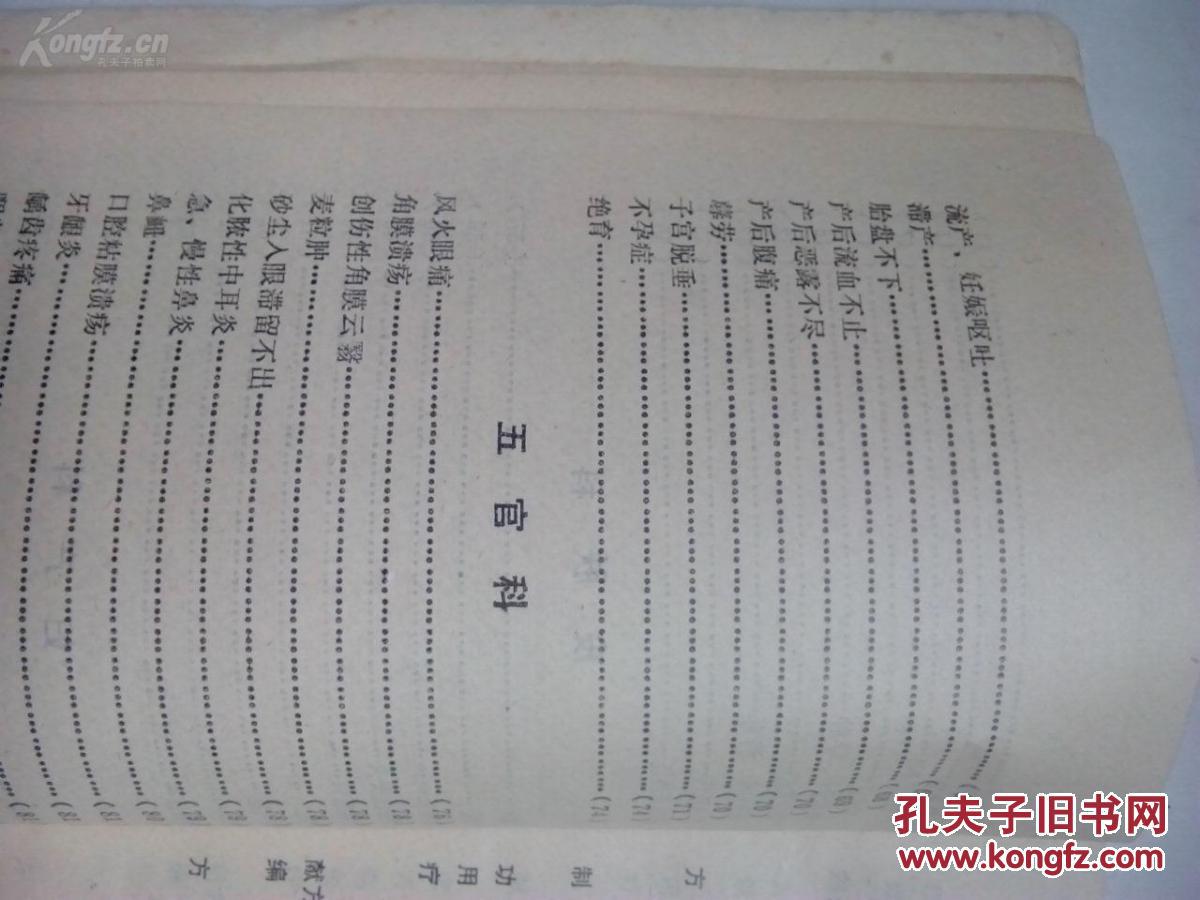 流产、妊娠呕吐……………………
滞产……………………
胎盘不下……………………(68)
产后流血不止……………………(69)
产后恶露不尽……………………(70)
产后腹痛……………………(70)
蓐劳……………………(70)
子宫脱垂……………………(71)
不孕症……………………(74)
绝育……………………(74)
五官科
风火眼痛……………………(75)
角膜溃疡……………………(78)
创伤性角膜云翳……………………(78)
麦粒肿……………………(78)
砂尘入眼滞留不出……………………(78)
化脓性中耳炎……………………(79
急、慢性鼻炎……………………(79
鼻衄……………………(80
口腔粘膜溃疡……………………(81
牙龈炎……………………(81
龋齿疼痛……………………(8
方
制
功用
疗
献方
编
方
Kongfz.cn
孔夫子拍卖网
孔夫子旧书网
www.kongfz.com